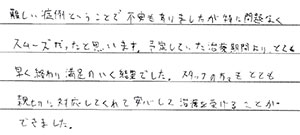 難しい症例ということで不安もありましたが特に問題なく
スムーズだったと思います。予定していた治療期間より、とても
早く終わり満足のいく結果でした。スタッフの方も とても
親切に対応してくれて安心して治療を受けることが
できました。